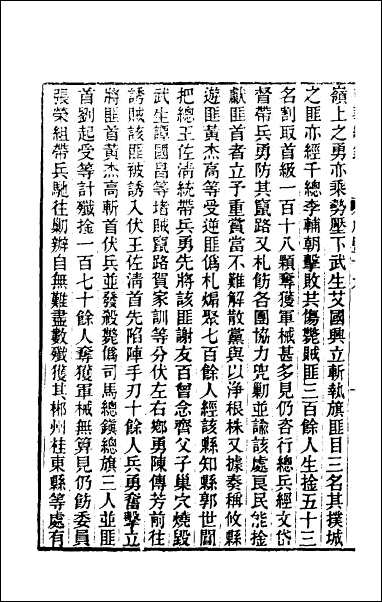 嶺上之勇亦乘勢壓下武生艾國興立斬執旗匪目三名其撲城
之匪亦經千總李輔朝擊敗其傷斃賊匪三百餘人生擒五十三
名割取首級一百十八顆奪獲軍械甚多見仍咨行總兵經文岱
督帶兵勇防其竄路又札飭各團協力兜勦並諭該處良民能擒
獻匪首者立予重賞當不難解散黨與以淨根株又據奏稱攸縣
遊匪黃杰高等受逆匪僞札煽聚七百餘人經該縣知縣郭世閶
把總王佐淸統帶兵勇先將該匪謝友百曾念齊父子巢穴燒毀
武生譚國昌等堵賊竄路賀家訓等分伏左右鄉勇陳傳芳前往
誘賊該匪被誘入伏王佐淸首先陷陣手刃十餘人兵勇奮擊立
將匪首黃杰高斬首伏兵並發殺斃僞司馬總鎭總旗三人並匪
首劉起受等計殲擒一百七十餘人奪獲軍械無算見仍飭委員
張榮組帶兵馳往勦辦自無難盡數殲獲其郴州桂東縣等處有